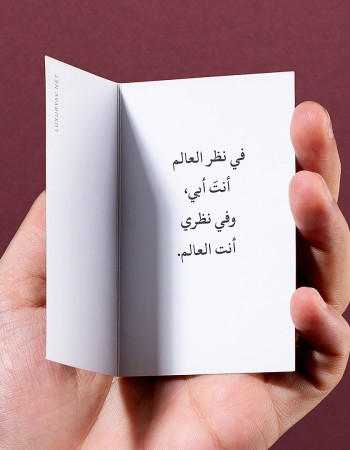 في نظر العالم
أنتَ أبي،
وفي نظري
أنت العالم.